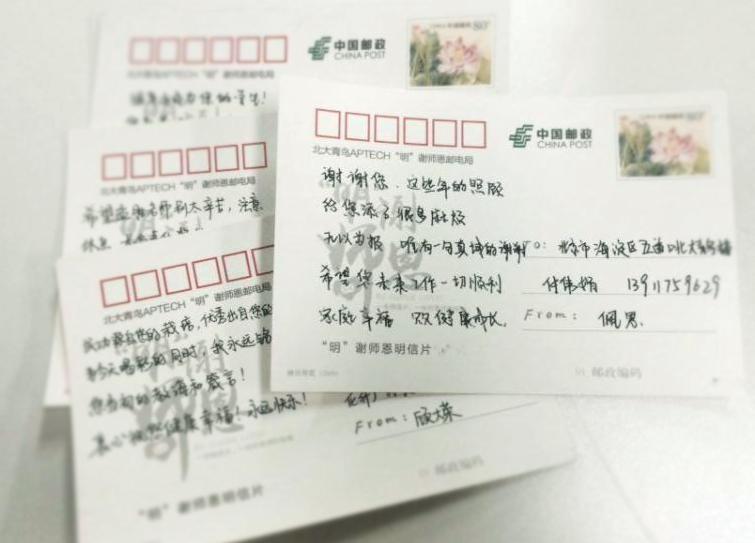 中国邮政
CHINA POST
北大青鸟APTECH“明”谢师恩邮电局
中国邮政
CHINA POST
北大青鸟APTECH“明”谢师恩邮电局
谢谢您,这些年的照顾
给您添了很多麻烦
无以为报 唯有一句真诚的谢谢
希望您未来工作一切顺利
家庭幸福 健康成长.
To: 北京市海淀区五道口北大青鸟
付伟娟 13911759629
From: 佩男.
“明”谢师恩明信片
邮政编码
北大青鸟APTECH“明”谢师恩邮电局
希望 老师别太辛苦,注意
休息
北大青鸟APTECH“明”谢师恩邮电局
成功源自您的栽培,优秀出自您的
的同时,我永远
您当初的教诲和箴言!
衷心祝您健康幸福!永远快乐!
From:
“明”谢师恩明信片
邮政编码
明谢师恩